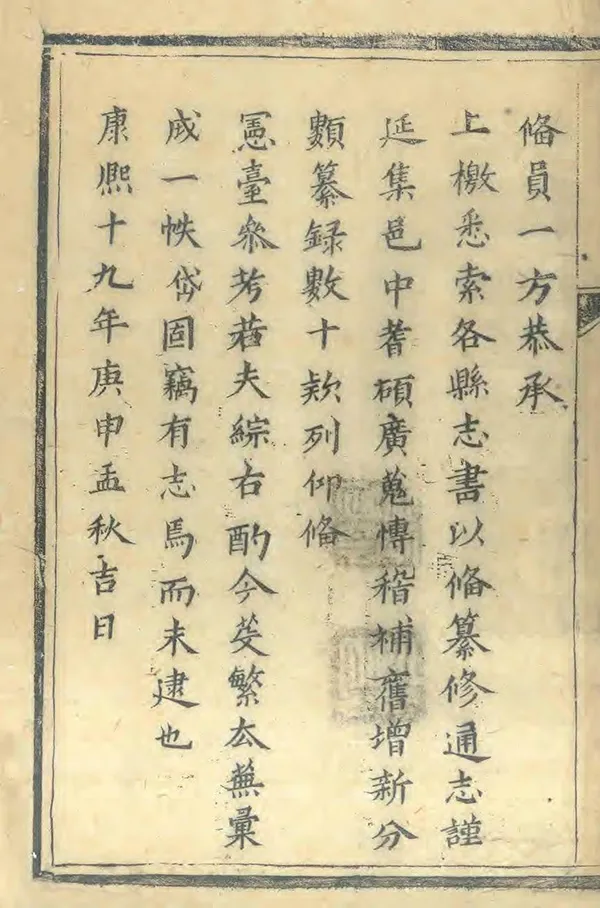 偹員一方恭承
上檄悉索各縣志書以偹纂修通志謹
延集邑中耆碩廣蒐博稽補舊增新分
類纂録數十欵列仰偹
憲臺叅考若夫綜古酌今芟繁去蕪彙
成一帙岱固竊有志焉而未逮也
康熙十九年庚申孟秋吉日